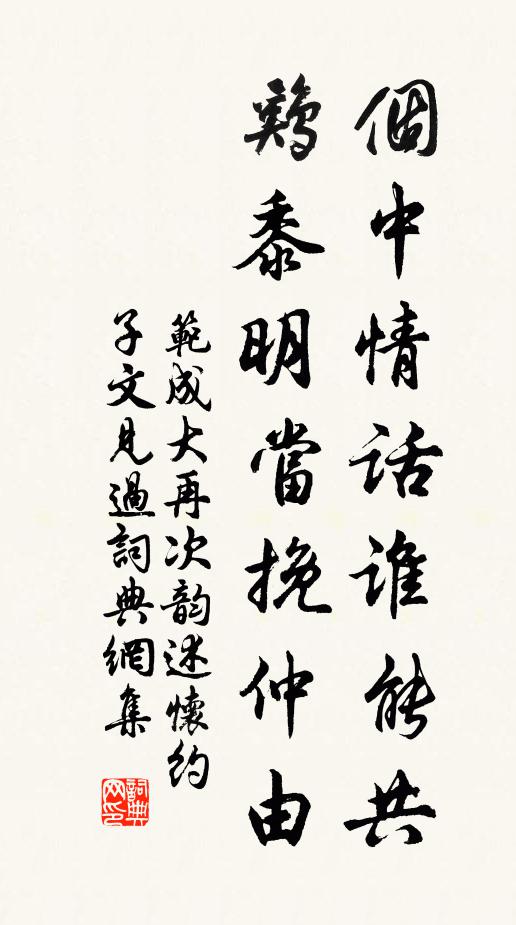 個中情話誰能共
鷄黍明當挽仲由
範成大再次韵述懷約
子文見過詞典網集
詞典网印